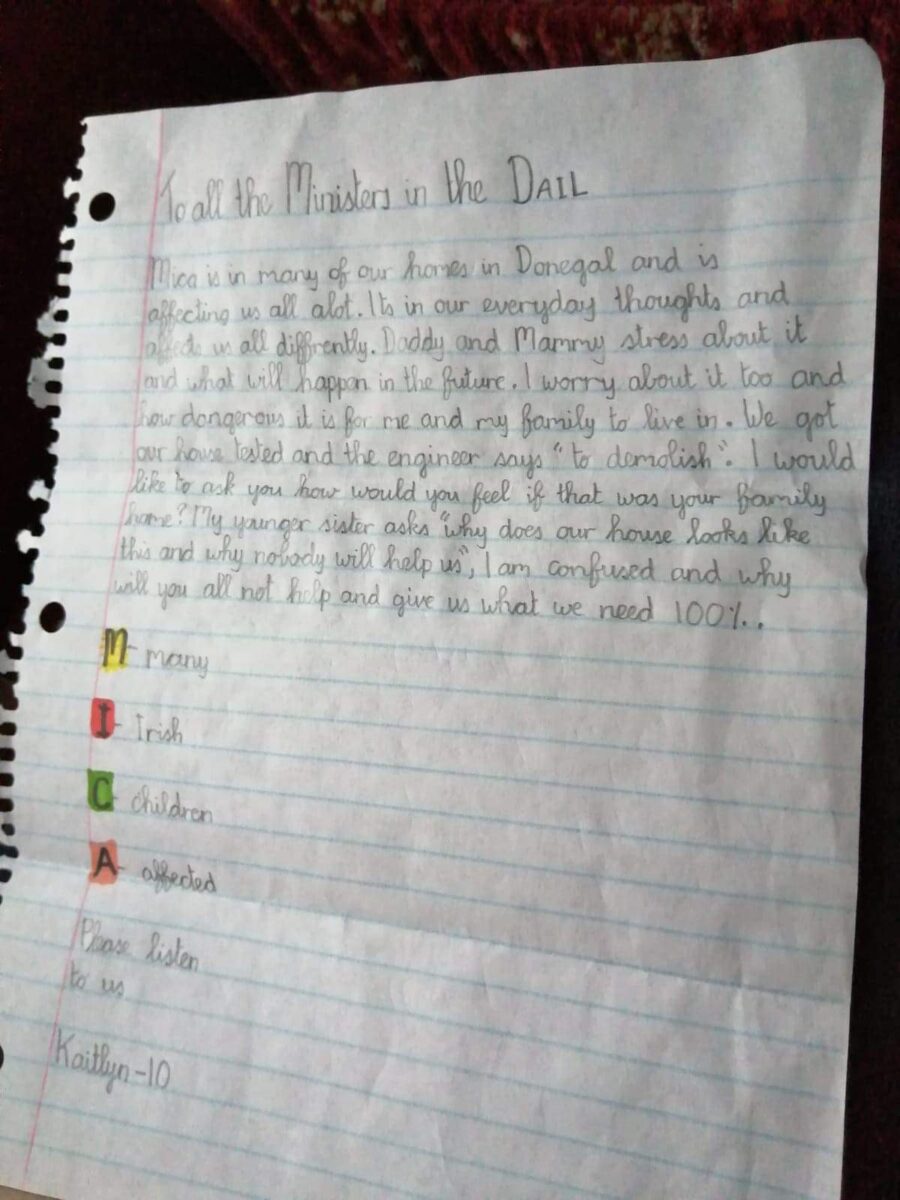 To all the Ministers in the DAIL
Mica is in many of our homes in Donegal and is
affecting us all alot. Its in our everyday thoughts and
affects us all diffrently. Daddy and Mammy stress about it
and what will happen in the future. I worry about it too and
how dangerous it is for me and my family to live in. We got
our house tested and the engineer says "to demolish". I would
like to ask you how would you feel if that was your family
home? My younger sister asks "why does our house looks like
this and why nobody will help us", I am confused and why
will you all not help and give us what we need 100%..
M- many
I- Irish
C- children
A- affected
Please listen
to us
Kaitlyn-10